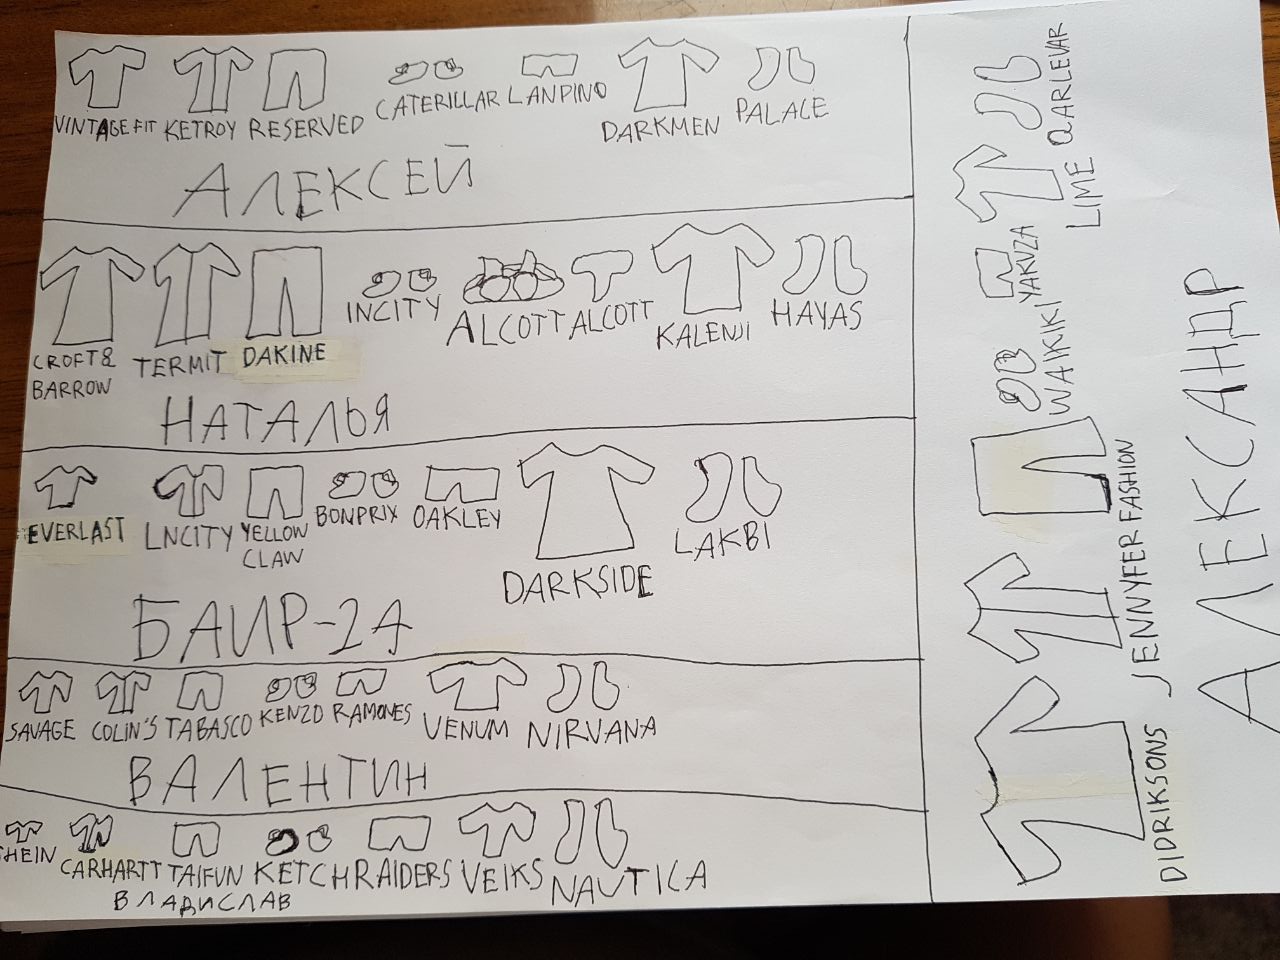 VINTAGE FIT KETROY RESERVED CATERILLAR LANPINO DARKMEN PALACE
АЛЕКСЕЙ
CROFT & BARROW TERMIT DAKINE INCITY ALCOTT ALCOTT KALENJI HAYAS
НАТАЛЬЯ
EVERLAST LNCITY YELLOW CLAW BONPRIX OAKLEY DARKSIDE LAKBI
БАИР-24
SAVAGE COLIN'S TABASCO KENZO RAMONES VENUM NIRVANA
ВАЛЕНТИН
SHEIN CARHARTT TAIFUN KETCH RAIDERS VEIKS NAUTICA
ВЛАДИСЛАВ
DIDRIKSONS JENNYFER FASHION WAIKIKI YAKUZA LIME QARLEVAR
АЛЕКСАНДР